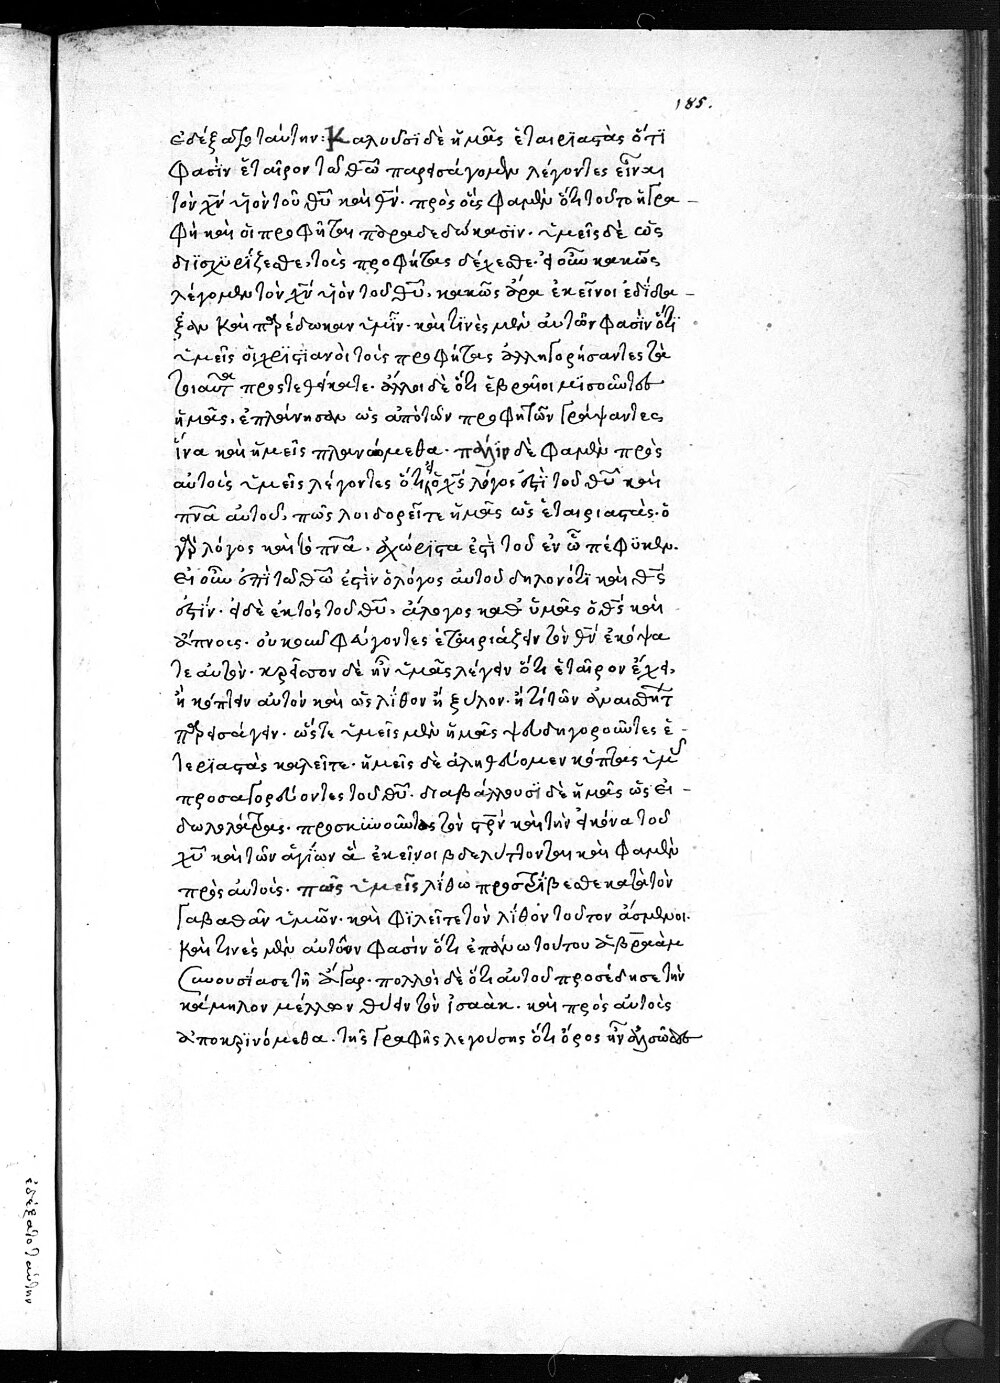 185.
ἐδέξατο ταύτην: Καλοῦσϊ δὲ ἡμᾶς ἑταιριαστὰς ὅτϊ
φασὶν ἑταῖρον τῶ θῶ παρεισάγομεν λέγοντες εἶναι
τὸν χν ὑϊὸν τοῦ θυ καὶ θν. πρὸς οἷς φαμὲν ὅτι τοῦτο ἡ γρα-
φὴ καὶ οἱ προφῆται παραδεδώκασϊν. ὑμεῖς δὲ ὡς
διϊσχυρίζεσθε, τοὺς προφήτας δέχεσθε. εἰ οὖν κακῶς
λέγομεν τὸν χν ὑϊὸν τοῦ θυ, κακῶς ἄρα ἐκεῖνοι ἐδίδα-
ξαν καὶ παρέδωκαν ὑμῖν. καὶ τϊνὲς μὲν αὐτῶν φασὶν ὅτϊ
ὑμεῖς οἱ χρϊστϊανοὶ τοὺς προφήτας ἀλληγορήσαντες τὰ
τοιαῦτα προστεθείκατε. ἄλλοι δὲ ὅτι ἑβραῖοι μϊσοῦντες
ἡμᾶς, ἐπλάνησαν ὡς ἀπὸ τῶν προφητῶν γράψαντες
ἵνα καὶ ἡμεῖς πλανώμεθα. πάλϊν δὲ φαμὲν πρὸς
αὐτοὺς ὑμεῖς λέγοντες ὅτι ὁ χς λόγος ἐστὶ τοῦ θυ καὶ
πνα αὐτοῦ, πῶς λοιδορεῖτε ἡμᾶς ὡς ἑταιριαστάς. ὁ
γὰρ λόγος καὶ τὸ πνα, ἀχώρϊστα ἐστὶ τοῦ ἐν ὧ πέφϋκεν.
Εἰ οὖν ἐπὶ τῶ θῶ ἐστὶν ὁ λόγος αὐτοῦ δηλονότι καὶ θς
ἐστίν. εἰ δὲ ἐκτὸς τοῦ θυ, ἄλογος καθ ὑμᾶς ὁ θς καὶ
ἄπνοις. οὐκοῦν φεύγοντες ἑταιριάζειν τὸν θν ἐκόψα
τε αὐτόν. κρεῖσσον δὲ ἦν ὑμᾶς λέγειν ὅτι ἑταῖρον ἔχει,
ἢ κόπτειν αὐτὸν καὶ ὡς λίθον ἢ ξύλον. ἤ τϊ τῶν ἀναισθήτ
παρεισάγειν. ὥστε ὑμεῖς μὲν ἡμᾶς ψευδηγοροῦντες ἑ-
τερϊαστὰς καλεῖτε. ἡμεῖς δὲ ἀληθεύομεν κόπτας ὑμᾶς
προσαγορεύοντες τοῦ θυ. διαβάλλουσϊ δὲ ἡμᾶς ὡς εἰ-
δωλολάτρας. προσκϋνοῦντας τὸν στρν καὶ τὴν εἰκόνα τοῦ
χυ καὶ τῶν ἁγίων ἃ ἐκεῖνοι βδελύττονται καὶ φαμὲν
πρὸς αὐτούς. πῶς ὑμεῖς λίθω προστρίβεσθε κατὰ τὸν
γαβαθὰν ὑμῶν. καὶ φϊλεῖτε τὸν λίθον τοῦτον ἄσμενοι.
Καὶ τινὲς μὲν αὐτῶν φασὶν ὅτι ἐπάνω τούτου ἁβραὰμ
συνουσίασε τῆ ἄγαρ. πολλοὶ δὲ ὅτι αὐτοῦ προσέδησε τὴν
κάμηλον μέλλων θύειν τὸν ἰσαάκ. καὶ πρὸς αὐτοὺς
ἀποκρϊνόμεθα. τῆς γραφῆς λεγούσης ὅτι ὄρος ἦν ἀλσῶδες
ἐδέξατο ταύτην